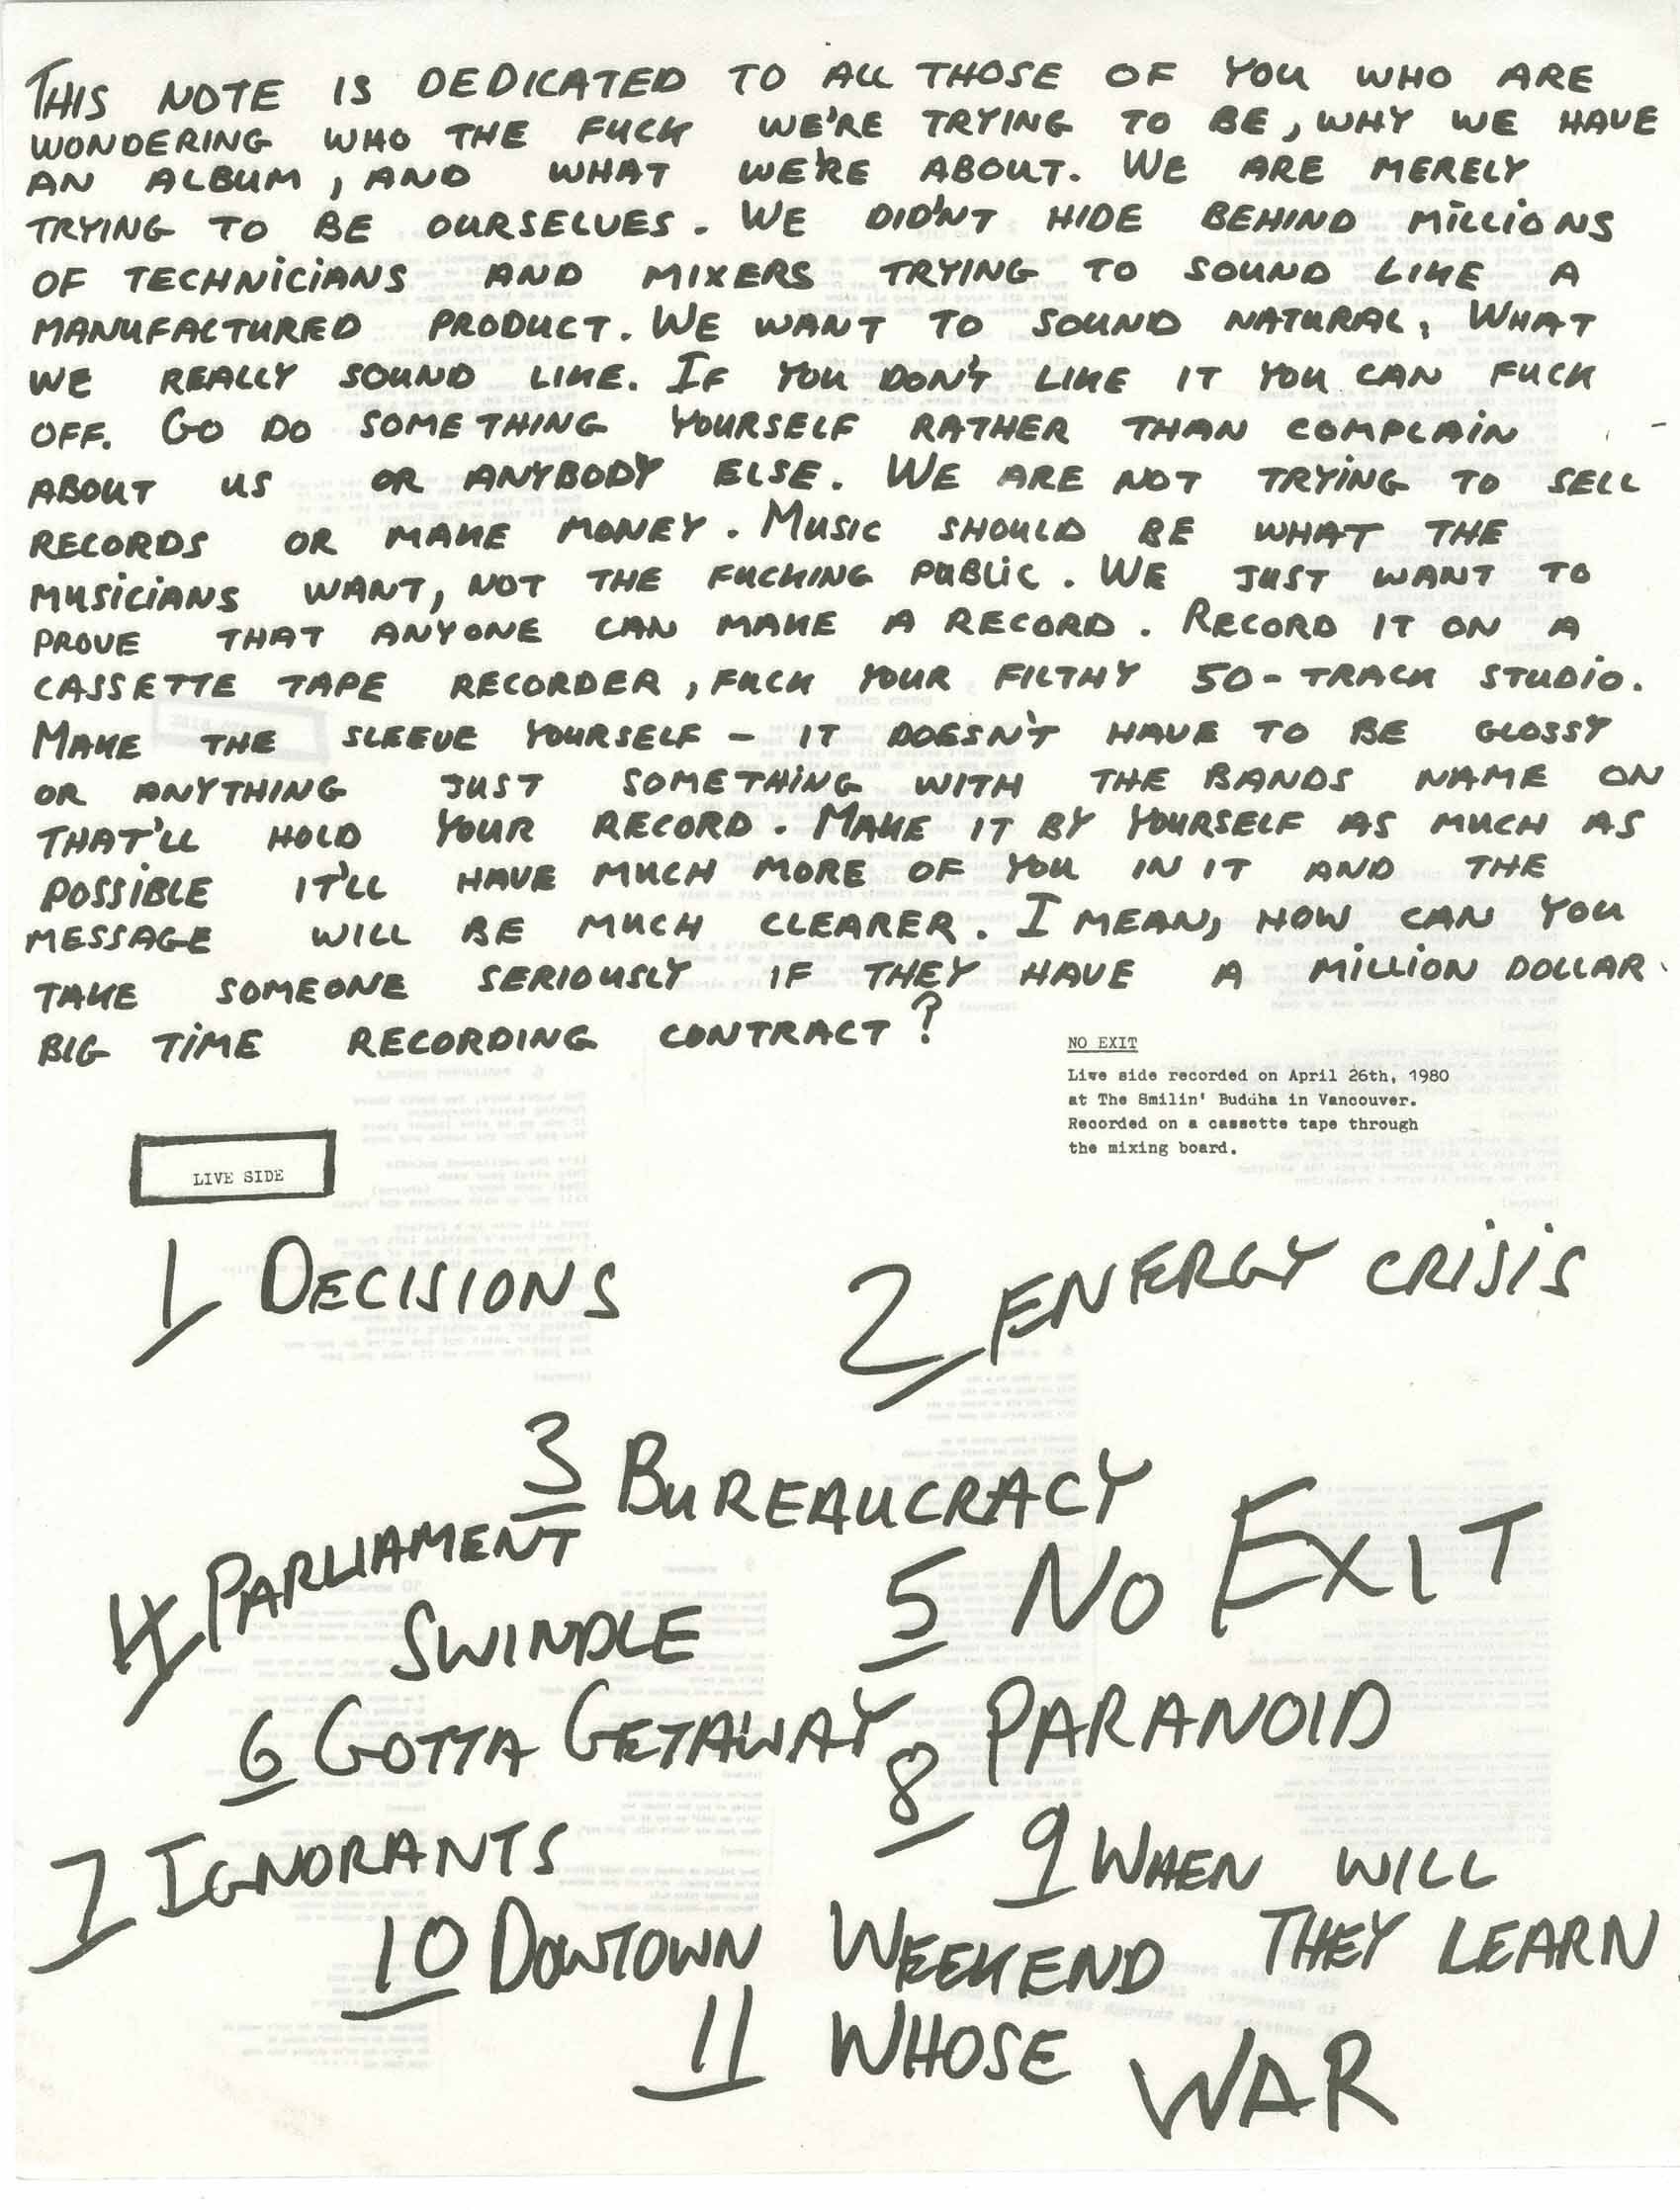 THIS NOTE IS DEDICATED TO ALL THOSE OF YOU WHO ARE
WONDERING WHO THE FUCK WE'RE TRYING TO BE, WHY WE HAVE
AN ALBUM, AND WHAT WE'RE ABOUT. WE ARE MERELY
TRYING TO BE OURSELVES. WE DID'NT HIDE BEHIND MILLIONS
OF TECHNICIANS AND MIXERS TRYING TO SOUND LIKE A
MANUFACTURED PRODUCT. WE WANT TO SOUND NATURAL, WHAT
WE REALLY SOUND LIKE. IF YOU DON'T LIKE IT YOU CAN FUCK
OFF. GO DO SOMETHING YOURSELF RATHER THAN COMPLAIN
ABOUT US OR ANYBODY ELSE. WE ARE NOT TRYING TO SELL
RECORDS OR MAKE MONEY. MUSIC SHOULD BE WHAT THE
MUSICIANS WANT, NOT THE FUCKING PUBLIC. WE JUST WANT TO
PROVE THAT ANYONE CAN MAKE A RECORD. RECORD IT ON A
CASSETTE TAPE RECORDER, FUCK YOUR FILTHY 50-TRACK STUDIO.
MAKE THE SLEEVE YOURSELF - IT DOESN'T HAVE TO BE GLOSSY
OR ANYTHING JUST SOMETHING WITH THE BANDS NAME ON
THAT'LL HOLD YOUR RECORD. MAKE IT BY YOURSELF AS MUCH AS
POSSIBLE IT'LL HAVE MUCH MORE OF YOU IN IT AND THE
MESSAGE WILL BE MUCH CLEARER. I MEAN, HOW CAN YOU
TAKE SOMEONE SERIOUSLY IF THEY HAVE A MILLION DOLLAR
BIG TIME RECORDING CONTRACT?
NO EXIT
Live side recorded on April 26th, 1980
at The Smilin' Buddha in Vancouver.
Recorded on a cassette tape through
the mixing board.
LIVE SIDE
1 DECISIONS
2 ENERGY CRISIS
3 BUREAUCRACY
4 PARLIAMENT
SWINDLE
5 NO EXIT
6 GOTTA GETAWAY
8 PARANOID
7 IGNORANTS
9 WHEN WILL
THEY LEARN
10 DOWTOWN WEEKEND
11 WHOSE WAR